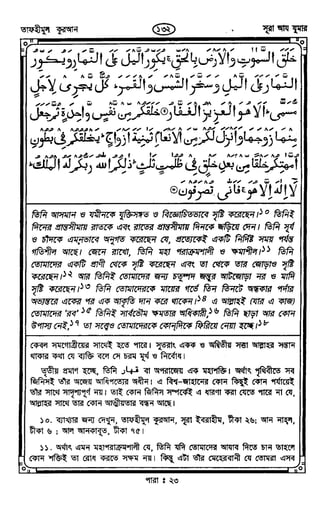 তাফহীমুল কুরআন
১৩২
সূরা আয যুমার
خَلَقَ السَّمٰوٰتِ وَالْاَرْضَ بِالْحَقِّ ۚ يُكَوِّرُ الَّيْلَ عَلَى النَّهَارِ وَيُكَوِّرُ
النَّهَارَ عَلَى الَّيْلِ وَسَخَّرَ الشَّمْسَ وَالْقَمَرَ ؕ كُلٌّ يَّجْرِىْ لِاَجَلٍ
مُّسَمًّى ؕ اَلَا هُوَ الْعَزِيْزُ الْغَفَّارُ ۞ خَلَقَكُمْ مِّنْ نَّفْسٍ وَّاحِدَةٍ ثُمَّ جَعَلَ
مِنْهَا زَوْجَهَا وَاَنْزَلَ لَكُمْ مِّنَ الْاَنْعَامِ ثَمٰنِيَةَ اَزْوَاجٍ ؕ يَخْلُقُكُمْ فِىْ بُطُوْنِ
اُمَّهٰتِكُمْ خَلْقًا مِّنْۢ بَعْدِ خَلْقٍ فِىْ ظُلُمٰتٍ ثَلٰثٍ ؕ ذٰلِكُمُ اللّٰهُ رَبُّكُمْ لَهُ الْمُلْكُ ؕ
لَاۤ اِلٰهَ اِلَّا هُوَ ۚ فَاَنّٰى تُصْرَفُوْنَ ۞
তিনি আসমান ও যমীনকে যুক্তিসঙ্গত ও বিজ্ঞোচিতভাবে সৃষ্টি করেছেন।১০ তিনিই
দিনের প্রান্তসীমায় রাতকে এবং রাতের প্রান্তসীমায় দিনকে জড়িয়ে দেন। তিনি সূর্য
ও চাঁদকে এমনভাবে অনুগত করেছেন যে, প্রত্যেকেই একটি নির্দিষ্ট সময় পর্যন্ত
গতিশীল আছে। জেনে রাখো, তিনি মহা পরাক্রমশালী ও ক্ষমাশীল।১১ তিনি
তোমাদের একটি প্রাণী থেকে সৃষ্টি করেছেন এবং তা থেকে তার জোড়াও সৃষ্টি
করেছেন।১২ আর তিনিই তোমাদের জন্য চতুষ্পদ জন্তুর আটজোড়া নর ও মাদি
সৃষ্টি করেছেন।১৩ তিনি তোমাদেরকে মায়ের গর্ভে তিন তিনটে অন্ধকার পর্দার
অভ্যন্তরে একের পর এক আকৃতি দান করে থাকেন।১৪ এ আল্লাহই (যার এ কাজ)
তোমাদের 'রব'১৫ তিনিই সার্বভৌম ক্ষমতার অধিকারী,১৬ তিনি ছাড়া আর কোন
উপাস্য নেই,১৭ তা সত্ত্বেও তোমাদেরকে কোন্‌দিকে ফিরিয়ে নেয়া হচ্ছে।১৮
কেবল সমগোত্রীয়ের মধ্যেই হতে পারে। সুতরাং একক ও অদ্বিতীয় সত্তা আল্লাহর সন্তান
থাকার কথা যে ব্যক্তি বলে সে চরম মূর্খ ও নির্বোধ।
তৃতীয় প্রমাণ হচ্ছে, তিনি قهار বা অপরাজেয় এক মহাশক্তি। অর্থাৎ পৃথিবীতে সব
জিনিসই তাঁর অজেয় আধিপত্যের অধীন। এ বিশ্ব-জাহানের কোন কিছুই কোন পর্যায়েই
তাঁর সাথে সাদৃশ্যপূর্ণ নয়। তাই কোন জিনিস সম্পর্কেই এ ধারণা করা যেতে পারে না যে,
আল্লাহর সাথে তার কোন আত্মীয়তার বন্ধন আছে।
১০. ব্যাখ্যার জন্য দেখুন, তাফহীমুল কুরআন, সূরা ইবরাহীম, টীকা ২৬; আন নাহল,
টীকা ৬ ; আল আনকাবুত, টীকা ৭৫।
১১. অর্থাৎ এমন মহাপরাক্রমশালী যে, তিনি যদি তোমাদের আযাব দিতে চান তাহলে
কোন শক্তিই তা রোধ করতে সক্ষম নয়। কিন্তু এটা তাঁর মেহেরবানী যে তোমরা এসব
পারা : ২৩